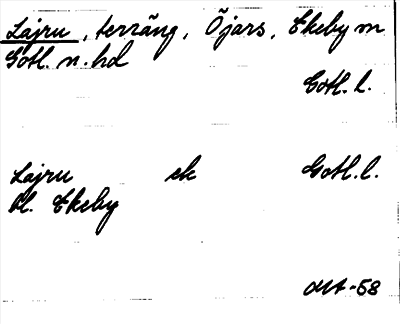 Lajru, terräng, Öjars, Ekeby sn
Gotl. n. hd
Gotl. l.
Lajru ek Gotl. l.
Bl. Ekeby
OUA-58